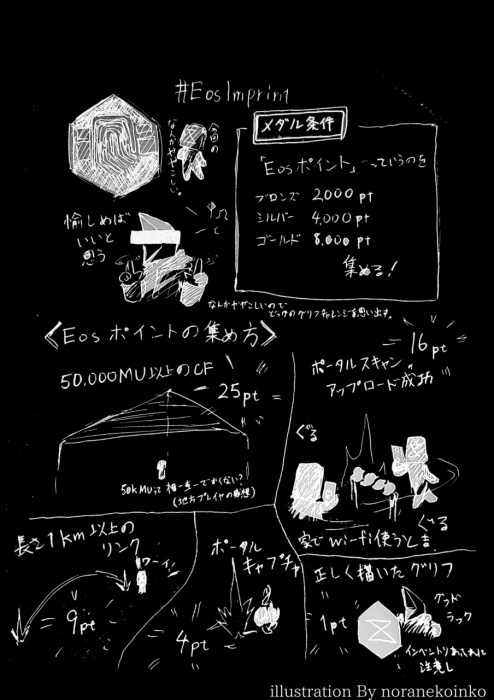 #EosImprint
今回の
なんかややこしい。
メダル条件
「Eosポイント」っていうのを
ブロンズ 2,000 pt
シルバー 4,000 pt
ゴールド 8,000 pt
集める!
愉しめば
いいと
思う
なんかややこしいので
どっかのグリフチャレンジを思い出す。
《Eosポイントの集め方》
50,000MU以上のCF
25pt
50kMUって相当でかくない?
(地方プレイヤの感想)
16pt
ポータルスキャン
アップロード成功
ぐる
ぐる
家でwifi使うと吉
長さ1km以上の
リンク
ワーイ!
= 9pt
ポータル
キャプチャ
= 4pt
正しく描いたグリフ
1pt
グッド
ラック
インベントリあふれに
注意し
illustration By noranekoinko